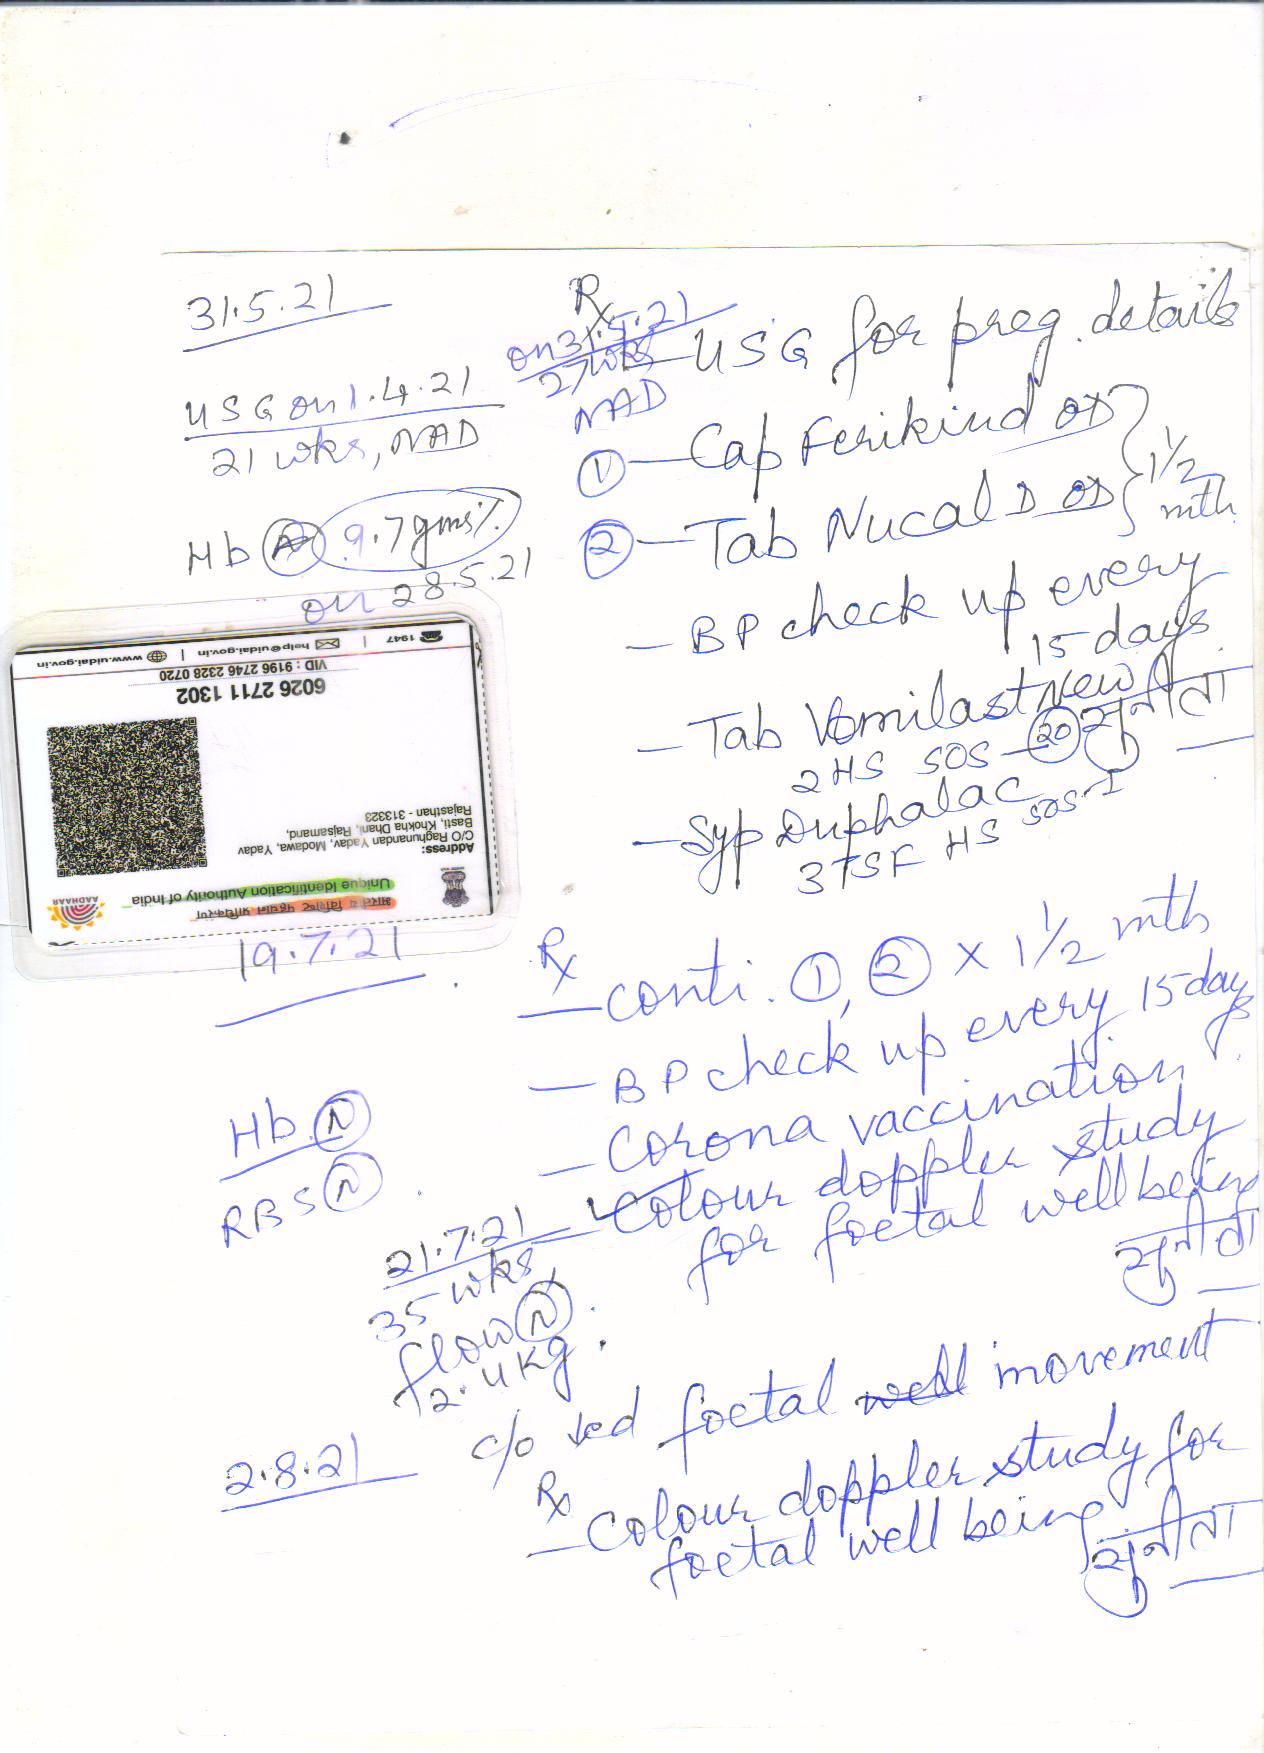 31.5.21
USG on 1.4.21
21 wks, NAD
Hb 9.7gms%
on 28.5.21
Rx
on 31.5.21
27 wks
NAD
— USG for preg. details
① — Cap Ferikind OD
② — Tab Nucal D OD
1½ mth
— BP check up every
15 days
— Tab Vomilast New
2 HS SOS — 20
सुनीता
— Syp Duphalac
3TSF HS SOS - 1
1947 | help@uidai.gov.in | www.uidai.gov.in
VID : 9196 2746 2328 0720
6026 2711 1302
Address:
C/O Raghunandan Yadav, Modawa, Yadav
Basti, Khokha Dhani, Rajsamand,
Rajasthan - 313323
भारतीय विशिष्ट पहचान प्राधिकरण
Unique Identification Authority of India
AADHAAR
19.7.21
Hb N
RBS N
Rx
— conti. ①, ② x 1½ mth
— BP check up every 15 days
— Corona vaccination
— Colour doppler study
for foetal well being
सुनीता
21.7.21
35 wks
flow N
2.4kg
2.8.21
c/o ↓ed foetal well movement
Rx
— Colour doppler study for
foetal well being
सुनीता